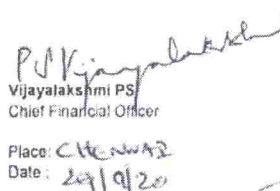 PS Vijayalakshmi
Vijayalakshmi PS
Chief Financial Officer
Place: CHENNAI
Date: 29/9/20